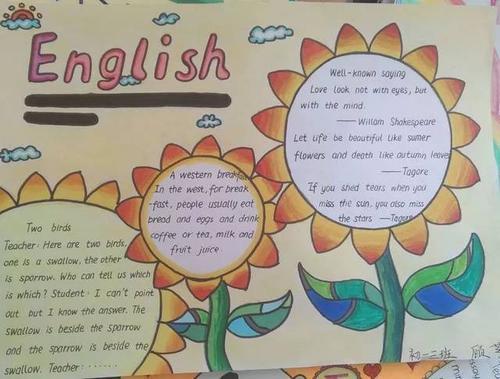 English
Well-known saying
Love look not with eyes, but
with the mind.
—— Willam Shakespeare
Let life be beautiful like sumer
flowers and death like autumn leave
—— Tagore
If you shed tears when you
miss the sun, you also miss
the stars —Tagore
A western breakfast
In the west, for break
-fast, people usually eat
bread and eggs and drink
coffee or tea, milk and
fruit juice.
Two birds
Teacher: Here are two birds,
one is a swallow, the other
is sparrow. Who can tell us which
is which? Student: I can't point
out but I know the answer. The
swallow is beside the sparrow
and the sparrow is beside the
swallow. Teacher: ······
初一三班 顾